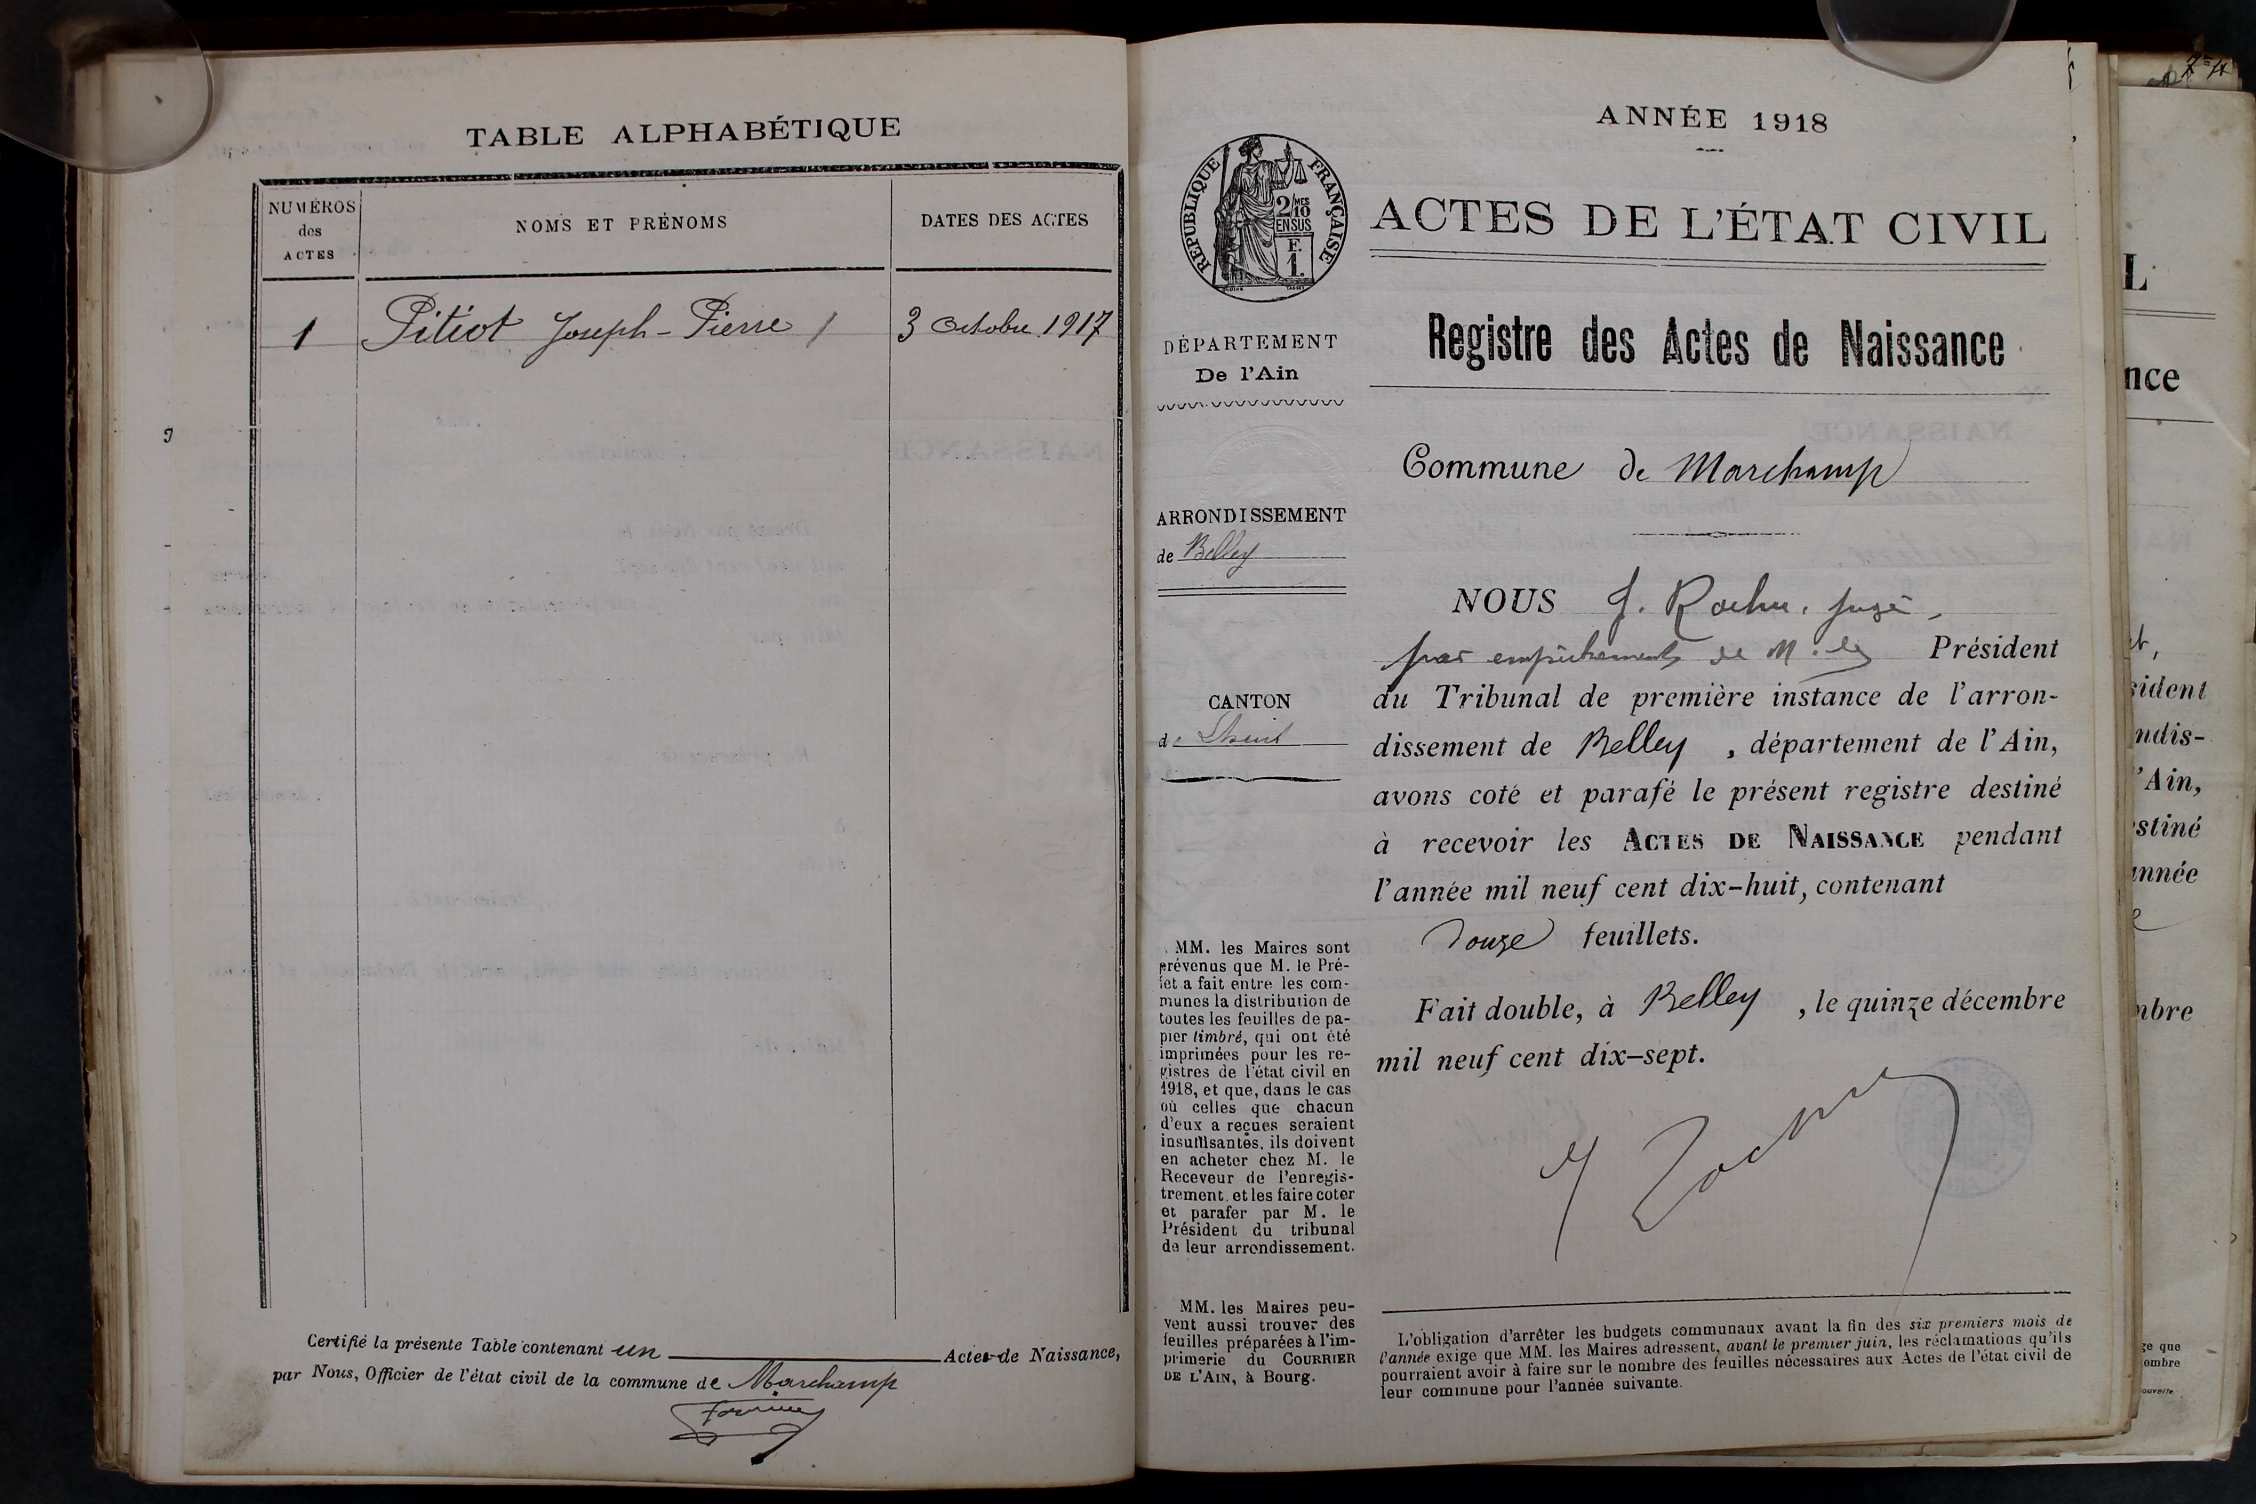 TABLE ALPHABÉTIQUE
NUMÉROS
des
ACTES
NOMS ET PRÉNOMS
DATES DES ACTES
1 Pitiot Joseph-Pierre 3 Octobre 1917
Certifié la présente Table contenant un Actes de Naissance,
par Nous, Officier de l'état civil de la commune de Marchamp
ANNÉE 1918
RÉPUBLIQUE FRANÇAISE
2/MES
10
EN SUS
F.
1.
ACTES DE L'ÉTAT CIVIL
Registre des Actes de Naissance
DÉPARTEMENT
De l'Ain
Commune de Marchamp
ARRONDISSEMENT
de Belley
CANTON
de Lhuis
NOUS J. Rochu, juge
par empêchement de M. le Président
du Tribunal de première instance de l'arron-
dissement de Belley, département de l'Ain,
avons coté et parafé le présent registre destiné
à recevoir les ACTES DE NAISSANCE pendant
l'année mil neuf cent dix-huit, contenant
Douze feuillets.
Fait double, à Belley, le quinze décembre
mil neuf cent dix-sept.
MM. les Maires sont
prévenus que M. le Pré-
fet a fait entre les com-
munes la distribution de
toutes les feuilles de pa-
pier timbré, qui ont été
imprimées pour les re-
gistres de l'état civil en
1918, et que, dans le cas
où celles que chacun
d'eux a reçues seraient
insuffisantes, ils doivent
en acheter chez M. le
Receveur de l'enregis-
trement, et les faire coter
et parafer par M. le
Président du tribunal
de leur arrondissement.
MM. les Maires peu-
vent aussi trouver des
feuilles préparées à l'im-
primerie du COURRIER
DE L'AIN, à Bourg.
L'obligation d'arrêter les budgets communaux avant la fin des six premiers mois de
l'année exige que MM. les Maires adressent, avant le premier juin, les réclamations qu'ils
pourraient avoir à faire sur le nombre des feuilles nécessaires aux Actes de l'état civil de
leur commune pour l'année suivante.
L
nce
sident
ndis-
l'Ain,
stiné
année
mbre